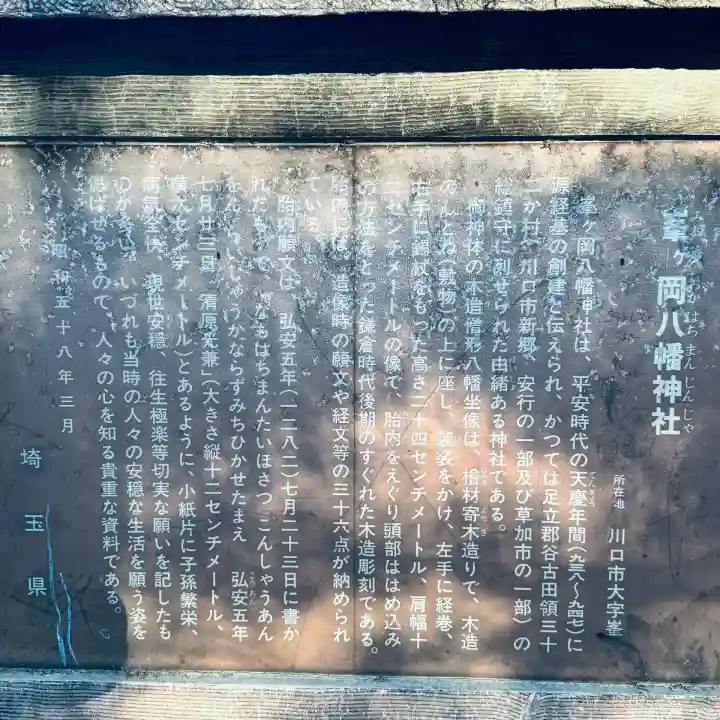 峯ヶ岡八幡神社
所在地 川口市大字峯
峯ヶ岡八幡神社は、平安時代の天慶年間(九三八〜九四七)に
源経基の創建と伝えられ、かつては足立郡谷古田領三十
二か村(川口市新郷、安行の一部及び草加市の一部)の
総鎮守に列せられた由緒ある神社である。
御神体の木造僧形八幡坐像は、檜材寄木造りで、木造
のしとね(敷物)の上に座し、袈裟をかけ、左手に経巻、
右手に錫杖をもった高さ二十四センチメートル、肩幅十
二センチメートルの像で、胎内をえぐり頭部ははめ込み
の方法をとった鎌倉時代後期のすぐれた木造彫刻である。
胎内には、造像時の願文や経文等の三十六点が納められ
ている。
胎内願文は、弘安五年(一二八二)七月二十三日に書か
れたもので、「なもはちまんたいほさつ こんしゃうあん
をん こしゃうかならずみちひかせたまえ 弘安五年
七月廿三日 清原光兼」(大きさ縦十二センチメートル、
横六センチメートル)とあるように、小紙片に子孫繁栄、
病気全快、現世安穏 往生極楽等切実な願いを記したも
のが多い。いづれも当時の人々の安穏な生活を願う姿を
偲ばせるもので、人々の心を知る貴重な資料である。
昭和五十八年三月
埼玉県